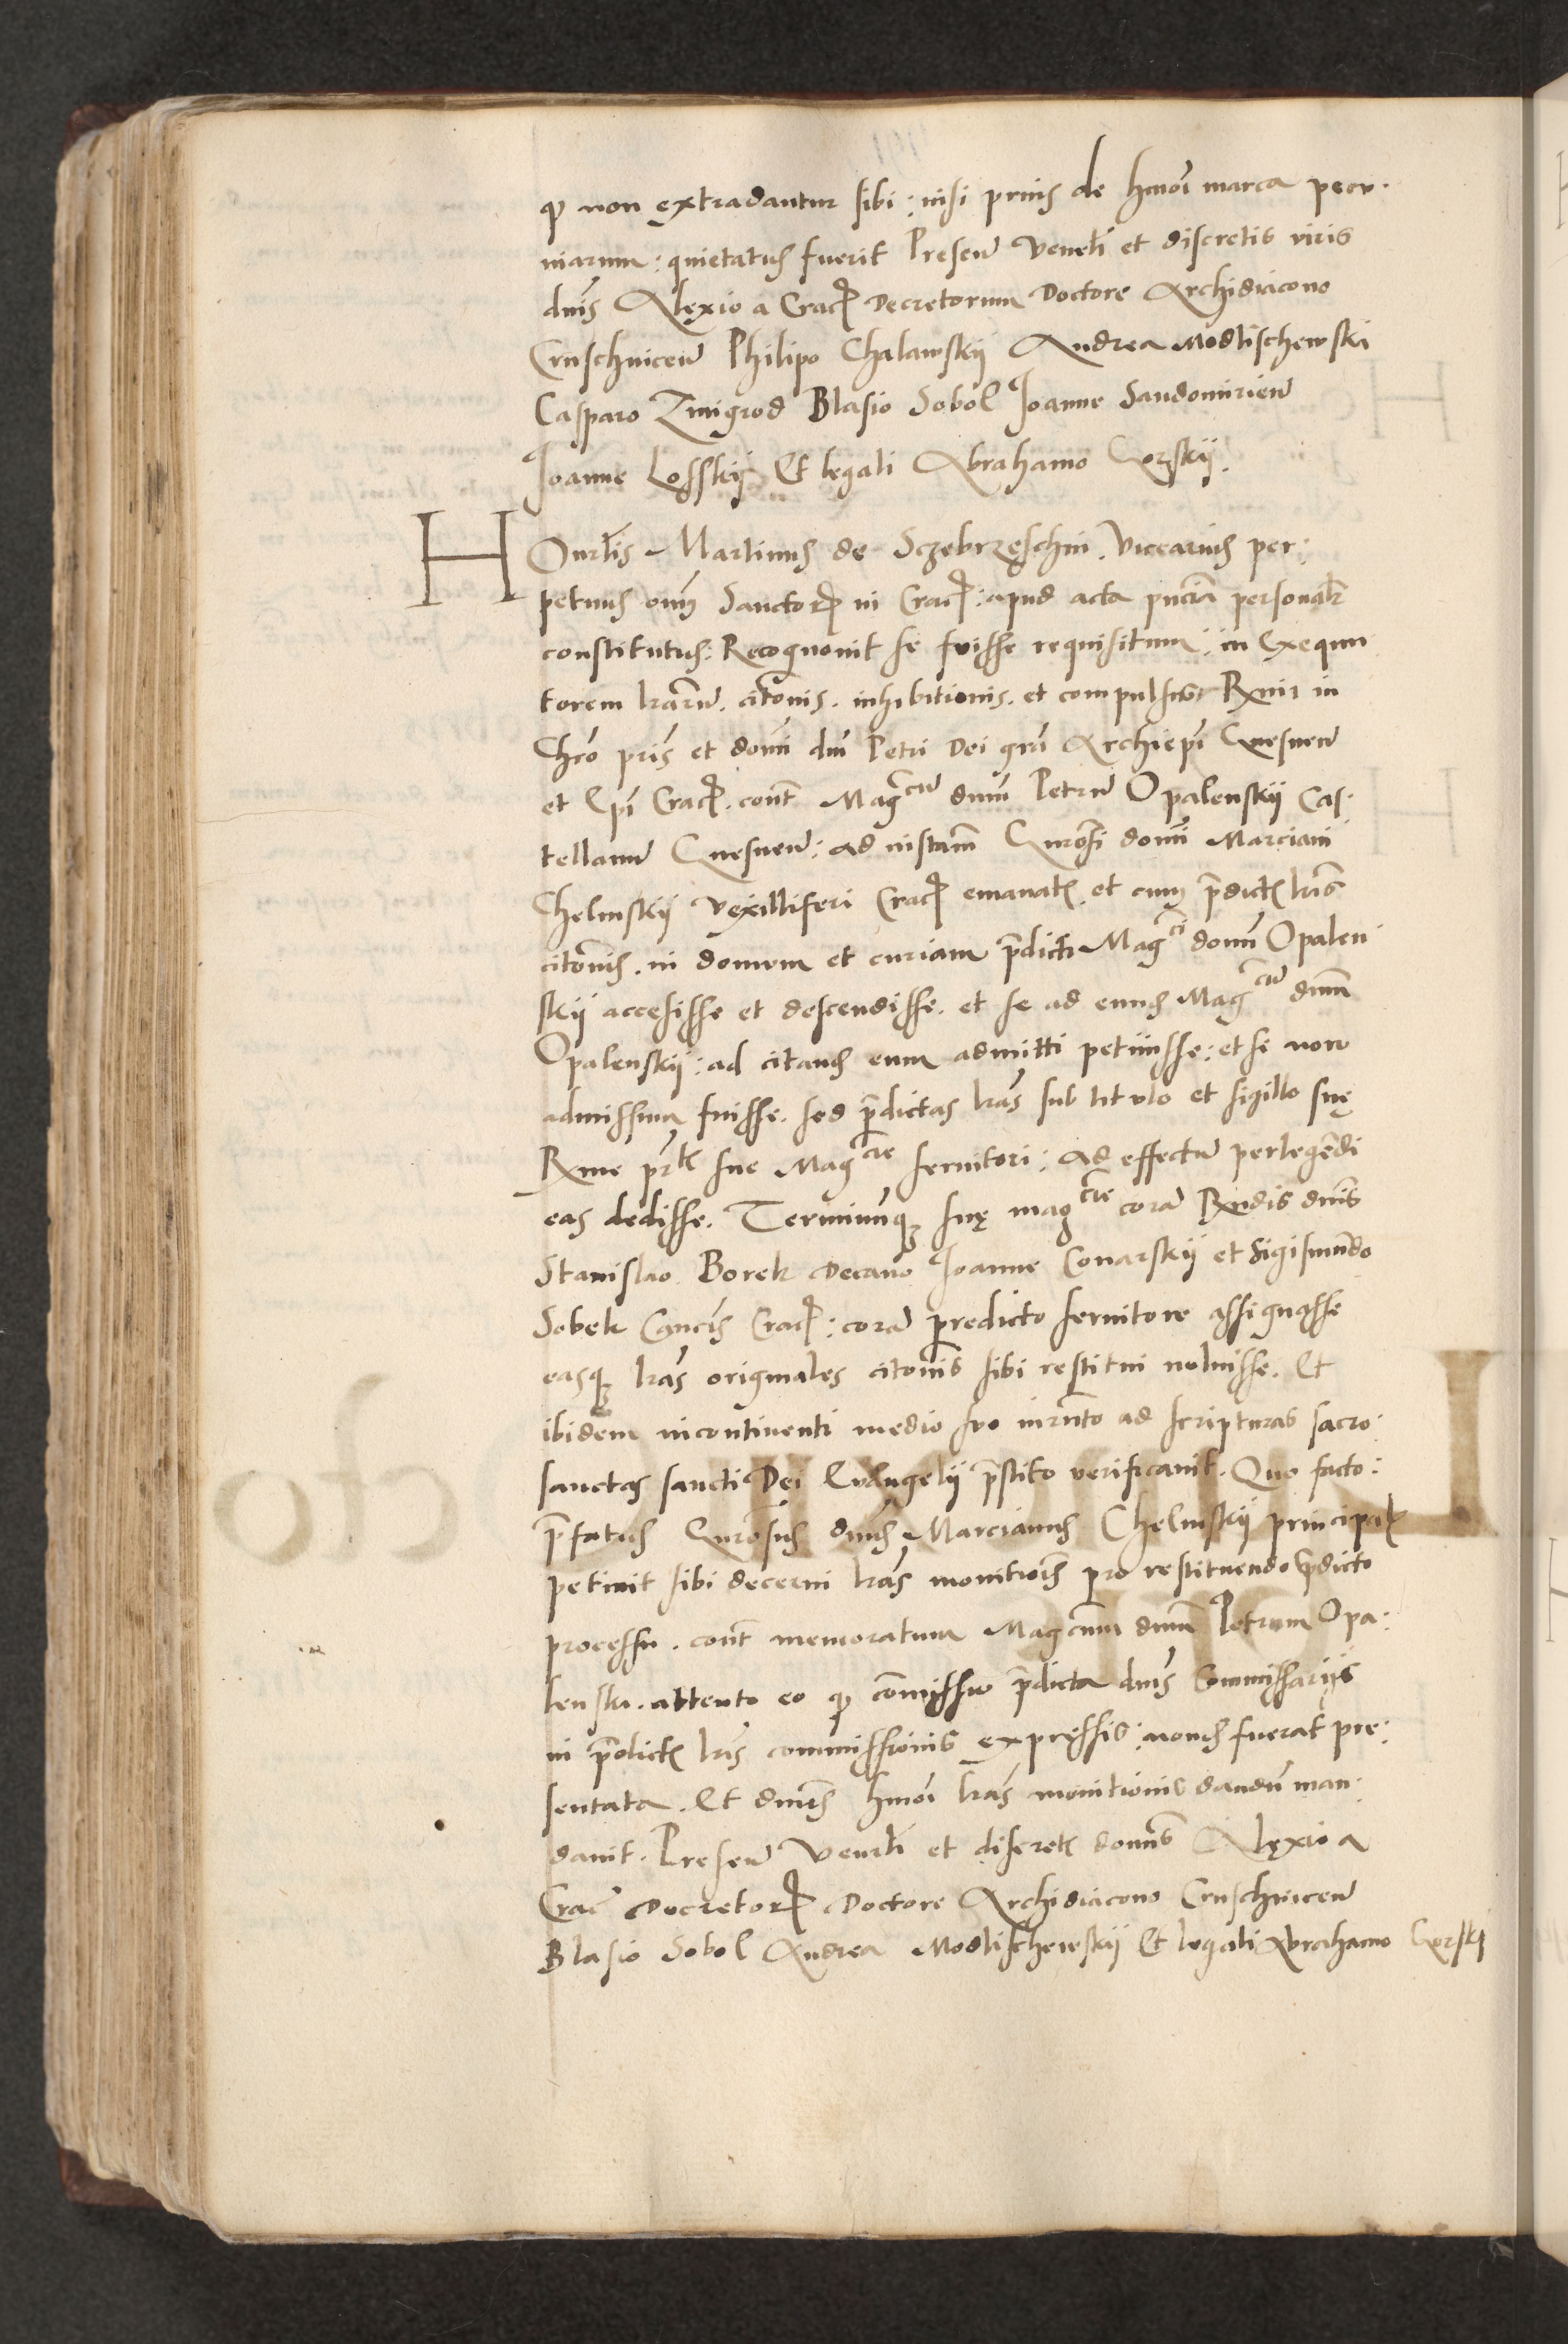 qͥ non extradantur sibi: nisi prius de hmōi marca pecu-
niarum: quietatus fuerit Presen̄ Venebl̄i et discretis viris
dnis Alexio a Crac̄ Decretorum Doctore Archidiacono
Cruschvicen̄ Philipo Chalawskij Andrea Modlischewski
Casparo Zmigrod Blasio Sobol Joanne Sandomirien̄
Joanne Losskij Et legali Abrahamo Gorskij.
HOnrl̄is Martinus de Sczebrzęschin. Vicearius per:
petuus om̄ Sanctor̄ in Crac̄: apud acta pn̄tia personalr̄
constitutus: Recognovit se fuisse requisitum: in Exequu
torem lrārū. citōnis. inhibitionis. et compulsur̄ Rmi in
Chrō prīs et domī dnī Petri Dei grā Archiepī Gnesnen̄
et Epī Crac̄. cont̄ Magcū dnum Petrū Opalenskij Cas-
tellanū Gnesnen̄: ad instam̄ Gnrōsi domī Marciani
Chelmskij Vexilliferi Crac̄ emanat̄ et cum prædict̄ lrīs
citōnis. in domum et curiam prædicti Magci domī Opalen-
skij accesisse et descendisse. et se ad eund Magcū dnum
Opalenskij: ad citand eum admitti petiuisse: et se non
admissum fuisse. sed prædictas lrās sub titulo et sigillo suę
Rme prt̄is sue Magcie seruitori: ad effectū perlegendi
eas dedisse. Terminumq; suę magcie corā Rndis dnis
Stanislao Borek Decano Joanne Conarskij et Sigismūdo
Sobek Cancis Crac̄: corā predicto seruitore assignasse
easq; lrās originales citōnis sibi restitui noluisse. Et
ibidem incontinenti medio suo iurn̄to ad scripturas sacro-
sanctas sancti Dei Evangelij prestito verificavit. Quo facto:
prefatus Gnrōsus dnus Marcianus Chelmskij principal̄
petiuit sibi decerni lrās monitiōis pro restituendo prædicto
processu. cont̄ memoratum Magcum dnum Petrum Opa-
lenski. attento eo qͥ commissio prædicta dnis Commissarijs
in prædict̄ lrīs commissionis expressis: nond fuerat pre-
sentata. Et dnus hmōi lrās monitionis dandū man-
davit. Presen̄ Venrl̄i et discret̄ domīs Alexio a
Crac̄ Decretor̄ Doctore Archidiacono Cruschvicen̄
Blasio Sobol Andrea Modlischewskij Et legali Abrahamo Gorskj